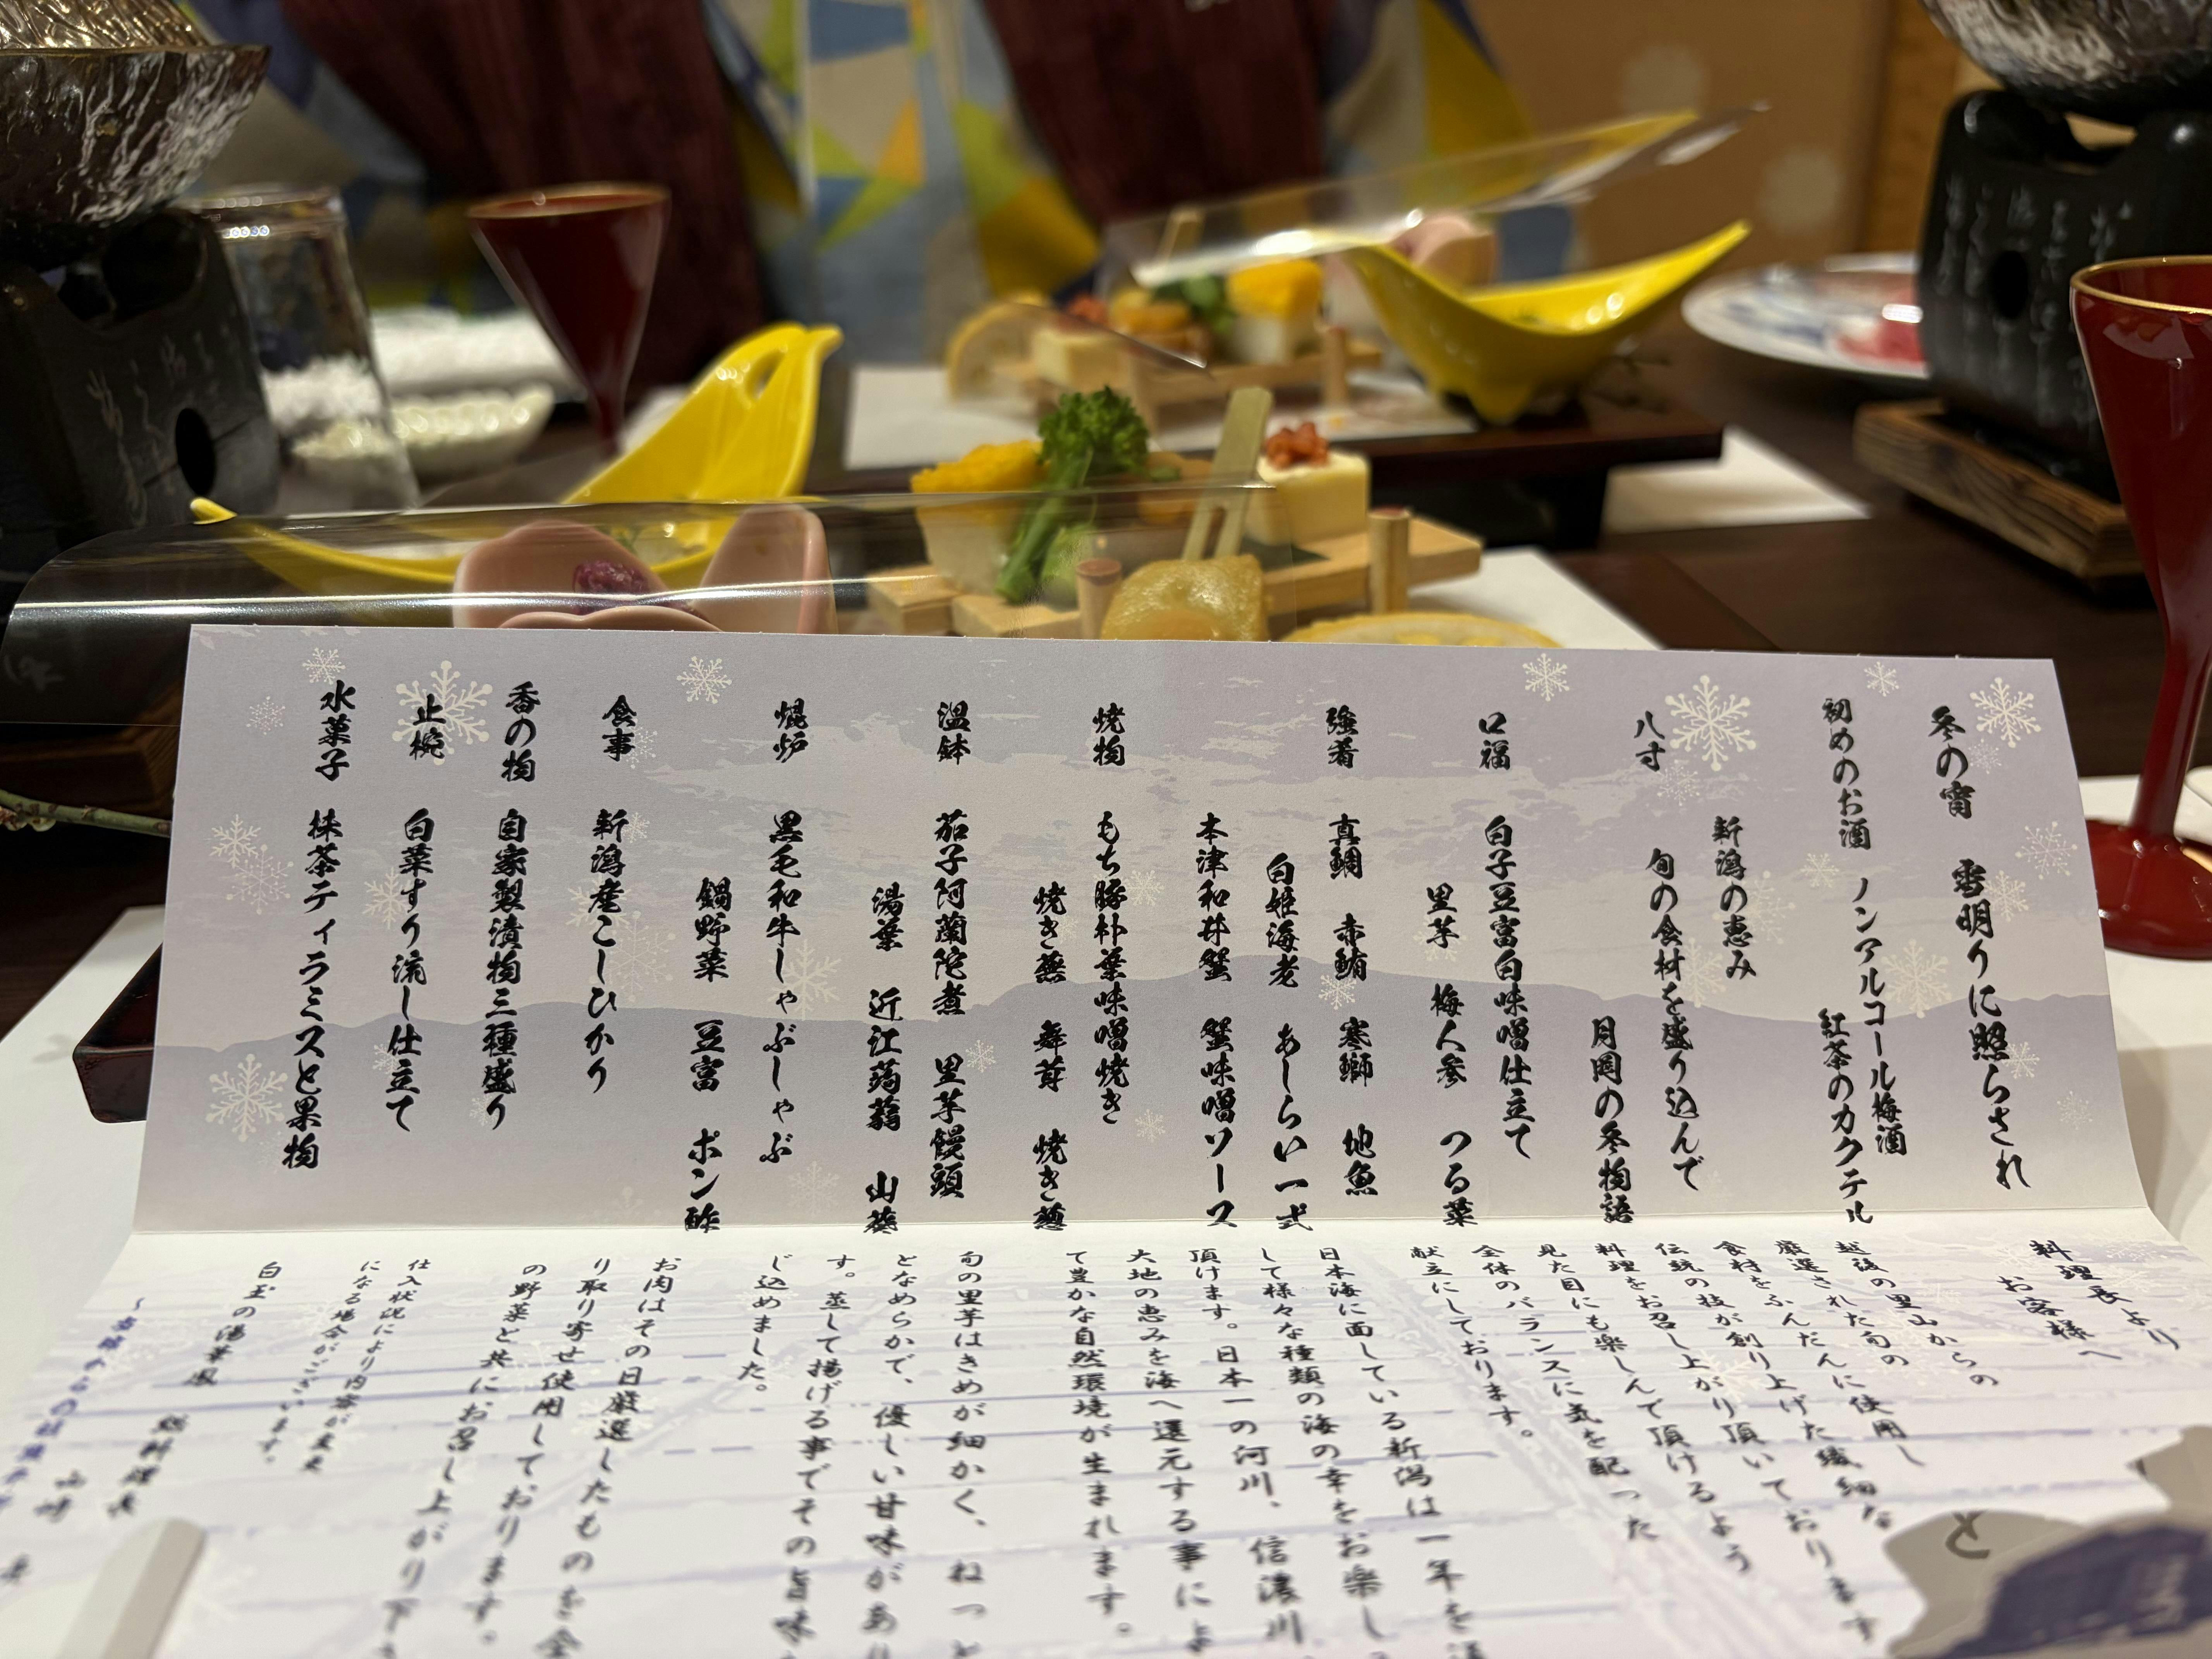 冬の宵　雪明りに照らされ
初めのお酒　ノンアルコール梅酒
紅茶のカクテル
新潟の恵み
八寸　旬の食材を盛り込んで
月岡の冬物語
口福　白子豆富白味噌仕立て
里芋　梅人参　つる菜
強肴　真鯛　赤鮪　寒鰤　地魚
白姫海老　あしらい一式
本津和井蟹　蟹味噌ソース
焼物　もち豚朴葉味噌焼き
焼き蕪　舞茸　焼き葱
温鉢　茄子阿蘭陀煮　里芋饅頭
湯葉　近江蒟蒻　山葵
焜炉　黒毛和牛しゃぶしゃぶ
鍋野菜　豆富　ポン酢
食事　新潟産こしひかり
香の物　自家製漬物三種盛り
止椀　白菜すり流し仕立て
水菓子　抹茶ティラミスと果物
料理長より
お客様へ
越後の里山からの
厳選された旬の
食材をふんだんに使用し
伝統の技が創り上げた繊細な
料理をお召し上がり頂いております
見た目にも楽しんで頂けるよう
全体のバランスに気を配った
献立にしております。
日本海に面している新潟は一年を
して様々な種類の海の幸をお楽し
頂けます。日本一の河川、信濃川
大地の恵みを海へ還元する事によ
て豊かな自然環境が生まれます。
旬の里芋はきめが細かく、ねっと
となめらかで、優しい甘味があり
す。蒸して揚げる事でその旨味
じ込めました。
お肉はその日厳選したものを全
り取り寄せ使用しております。
の野菜と共にお召し上がり下
仕入状況により内容が変更
になる場合がございます。
白玉の湯華鳳　総料理長